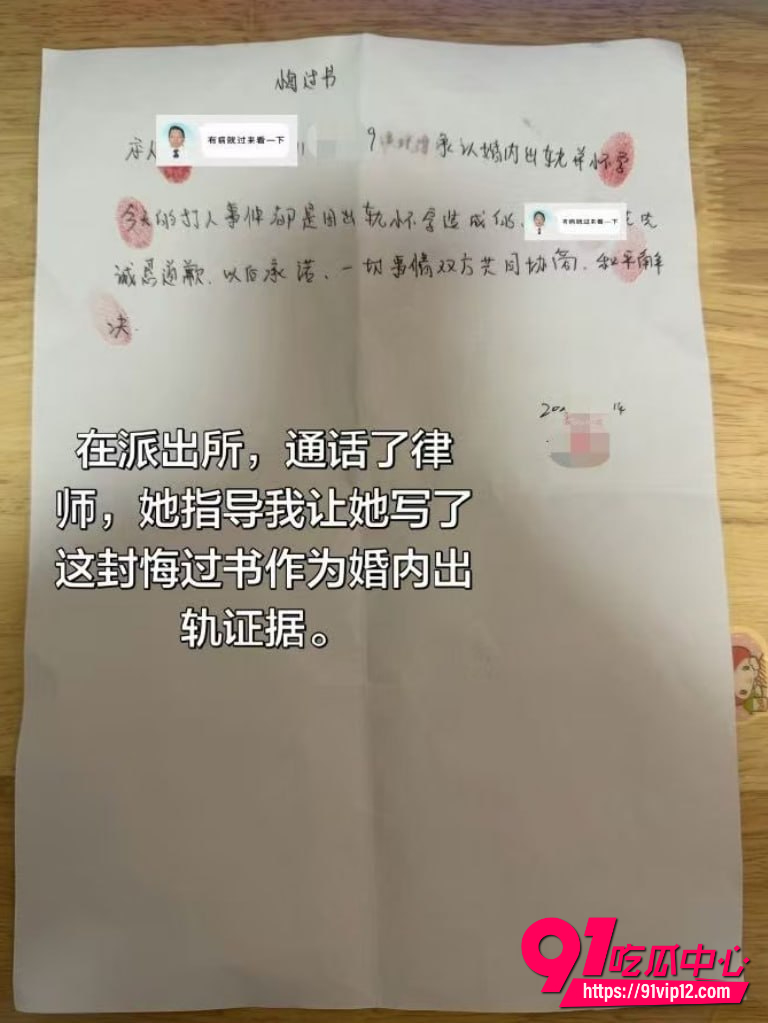 悔过书
本人
有病就过来看一下
9
承认婚内出轨并怀孕
今天的打人事件都是因出轨怀孕造成的、
有病就过来看一下
先
诚恳道歉、以后承诺、一切事情双方共同协商、和平解
决.
14
在派出所，通话了律
师，她指导我让她写了
这封悔过书作为婚内出
轨证据。
91吃瓜中心
https://91vip12.com